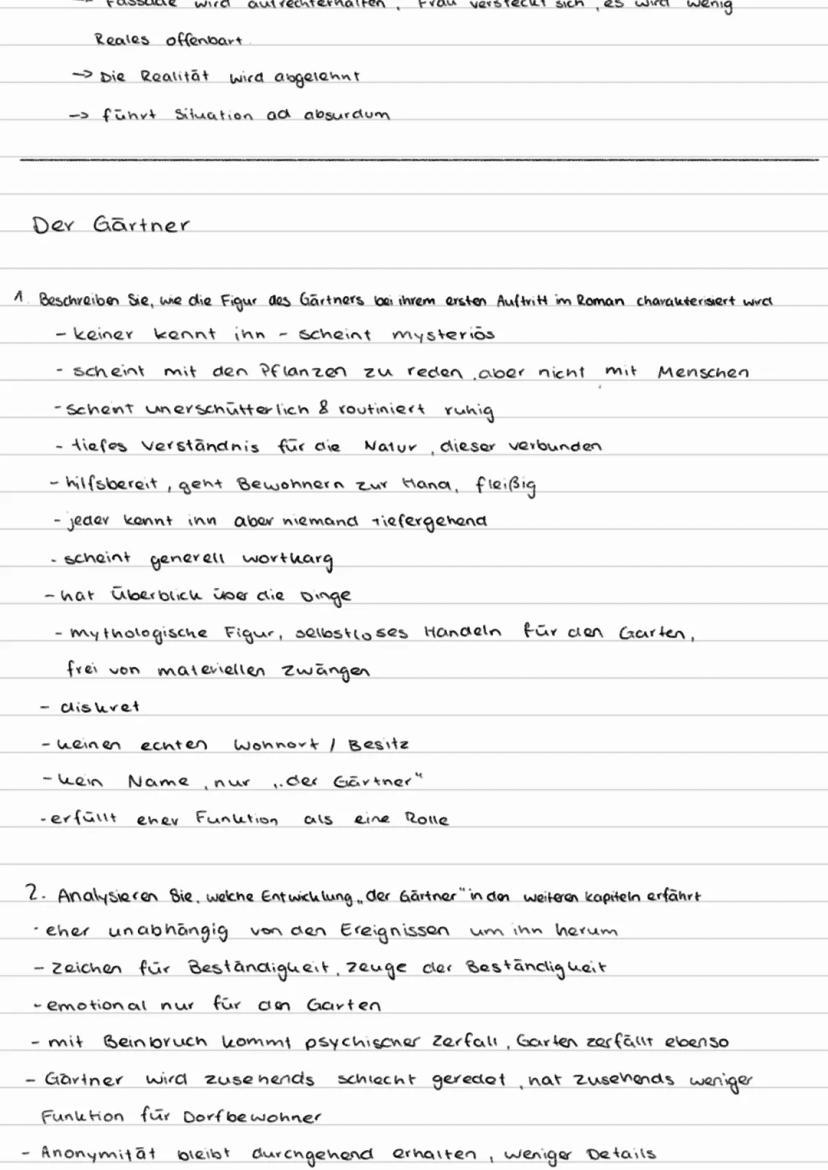 → Fassade wird aufrechterhalten, Frau versteckt sich, es wird wenig
Reales offenbart
→ Die Realität wird abgelehnt
→ führt Situation ad absurdum
Der Gärtner
1. Beschreiben Sie, wie die Figur des Gärtners bei ihrem ersten Auftritt im Roman charakterisiert wird
- keiner kennt ihn - scheint mysteriös
- scheint mit den Pflanzen zu reden, aber nicht mit Menschen
- scheint unerschütterlich & routiniert ruhig
- tiefes Verständnis für die Natur, dieser verbunden
- hilfsbereit, geht Bewohnern zur Hand, fleißig
- jeder kennt ihn aber niemand tiefergehend
- scheint generell wortkarg
- hat Überblick über die Dinge
- mythologische Figur, selbstloses Handeln für den Garten,
frei von materiellen Zwängen
- diskret
- keinen echten Wohnort / Besitz
- kein Name, nur „der Gärtner"
- erfüllt eher Funktion als eine Rolle
2. Analysieren Sie, welche Entwicklung „der Gärtner" in den weiteren Kapiteln erfährt
- eher unabhängig von den Ereignissen um ihn herum
- Zeichen für Beständigkeit, Zeuge der Beständigkeit
- emotional nur für den Garten
- mit Beinbruch kommt psychischer Zerfall, Garten zerfällt ebenso
- Gärtner wird zusehends schlecht geredet, hat zusehends weniger
Funktion für Dorfbewohner
- Anonymität bleibt durchgehend erhalten, weniger Details